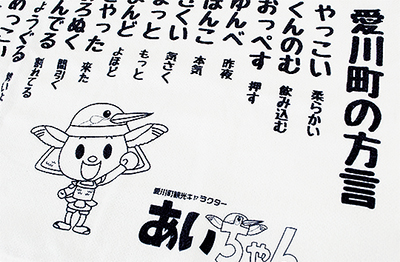 愛川町の方言
やっこい 柔らかい
くんのむ 飲み込む
おっぺす 押す
ゆんべ 昨夜
本気
さくい 気さく
っと もっと
んど よほど
やった 来た
ろぬく 間引く
んでる 割れてる
愛川町観光キャラクター
あいちゃん